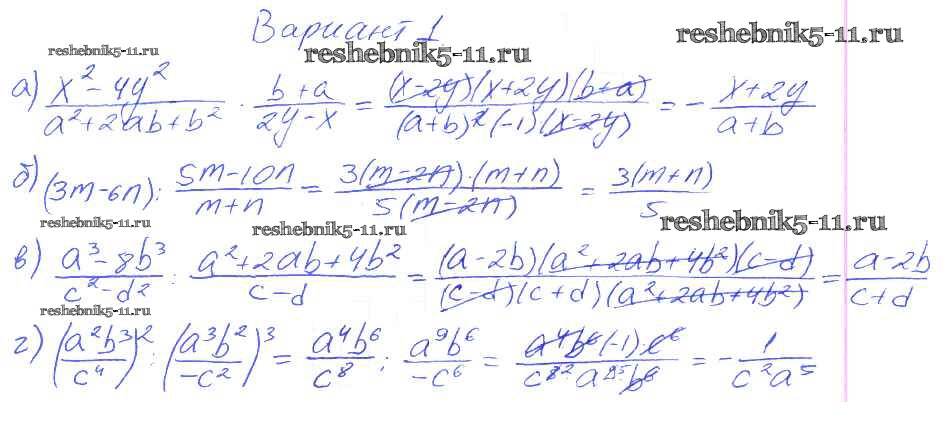 Вариант 1
reshebnik5-11.ru reshebnik5-11.ru reshebnik5-11.ru
а) (x² - 4y²)/(a² + 2ab + b²) · (b + a)/(2y - x) = ((x - 2y)(x + 2y)(b + a))/((a + b)²(-1)(x - 2y)) = - (x + 2y)/(a + b)
б) (3m - 6n) : (5m - 10n)/(m + n) = (3(m - 2n)·(m + n))/(5(m - 2n)) = (3(m + n))/5
reshebnik5-11.ru reshebnik5-11.ru reshebnik5-11.ru
в) (a³ - 8b³)/(c² - d²) : (a² + 2ab + 4b²)/(c - d) = ((a - 2b)(a² + 2ab + 4b²)(c - d))/((c - d)(c + d)(a² + 2ab + 4b²)) = (a - 2b)/(c + d)
reshebnik5-11.ru
г) (a²b³/c⁴)² : (a³b²/-c²)³ = a⁴b⁶/c⁸ : a⁹b⁶/-c⁶ = (a⁴b⁶(-1)c⁶)/(c⁸ ² a⁹ ⁵ b⁶) = - 1/(c²a⁵)